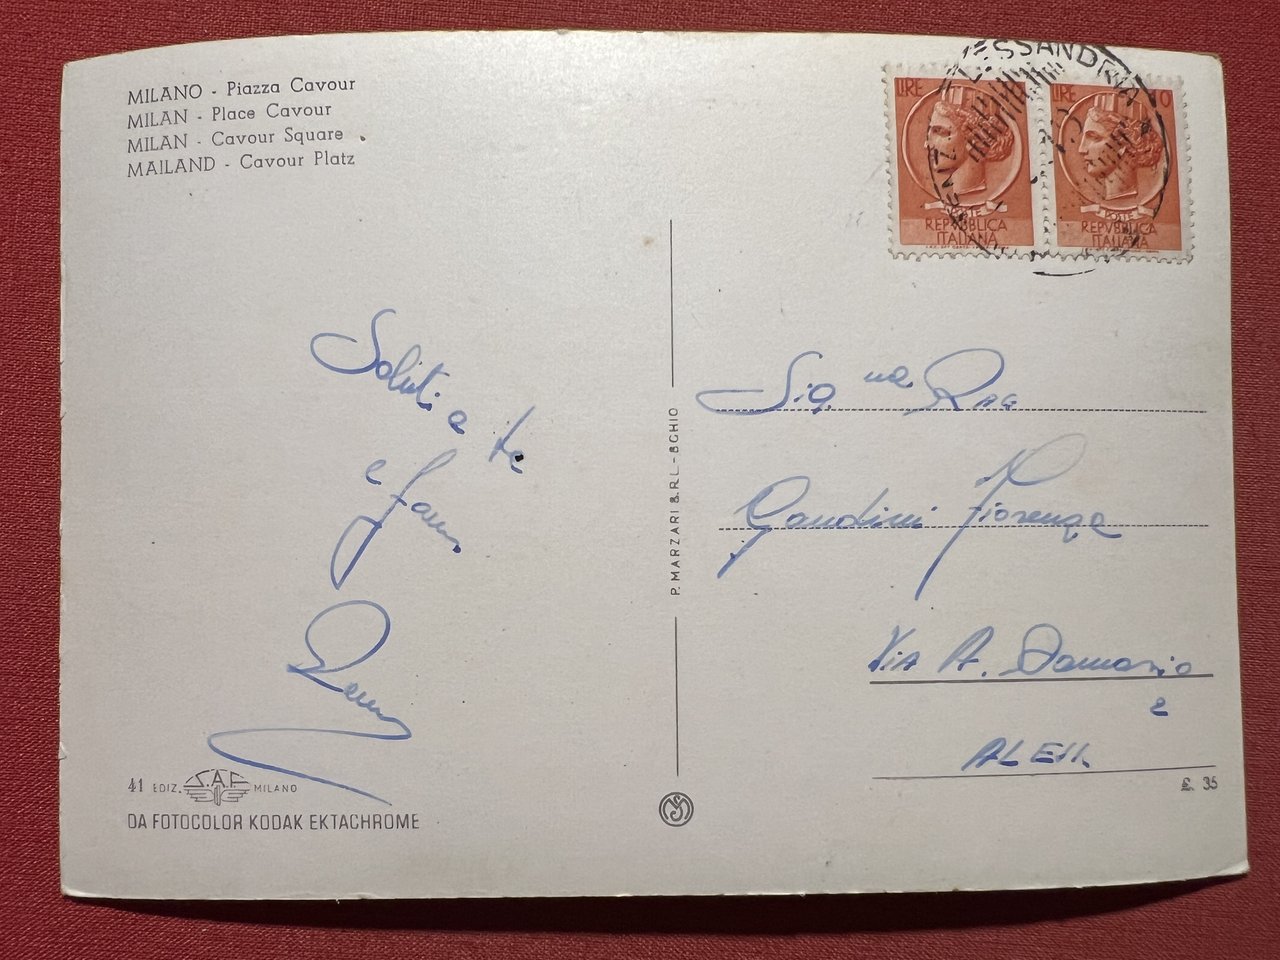 MILANO - Piazza Cavour
MILAN - Place Cavour
MILAN - Cavour Square
MAILAND - Cavour Platz
LIRE
POSTE
REPVBBLICA
ITALIANA
LIRE 10
POSTE
REPVBBLICA
ITALIANA
LESSANDRIA
Saluti a te
e fam
P. MARZARI S.R.L. - SCHIO
Sig.na Rag
Gandini Fiorenza
Via A.
2
ALESS.
41 EDIZ. S.A.F. MILANO
DA FOTOCOLOR KODAK EKTACHROME
£. 35